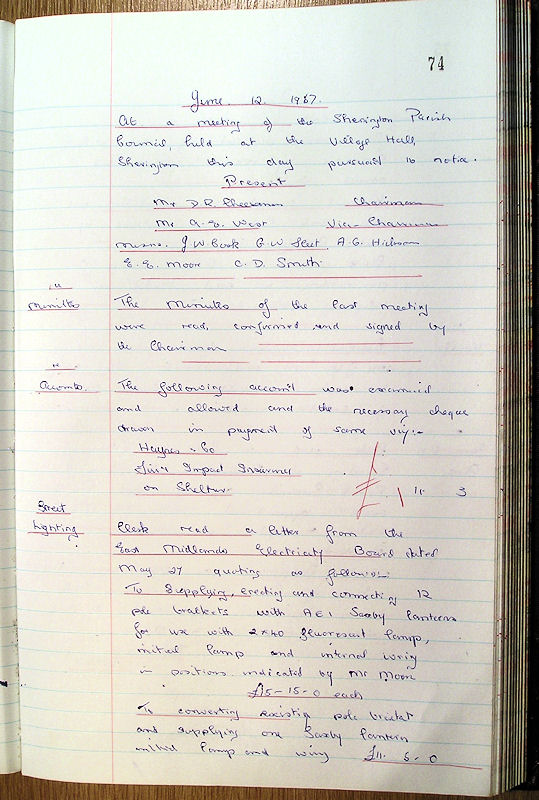 74
June. 12. 1967.
At a meeting of the Sherington Parish
Council, held at the Village Hall,
Sherington this day pursuant to notice.
Present
Mr D R Chairman
Mr A. E. West Vice-Chairman
Messrs. J W Cook G. W A. G. Hickson
E. E. Moor C. D. Smith
Minutes
The Minutes of the last meeting
were read, confirmed and signed by
the Chairman
Accounts.
The following account was examined
and allowed and the necessary cheque
drawn in payment of same viz:-
Haynes & Co
Impact Insurance
on Shelter
£ 1 11. 3
Street
Lighting
Clerk read a letter from the
East Midlands Electricity Board dated
May 27 quoting as follows:-
To Supplying, erecting and connecting 12
pole brackets with A E I Saxby lanterns
for use with 2x40 fluorescent lamps,
initial lamp and internal wiring
in positions indicated by Mr Moor
£15-15-0 each
To converting existing pole bracket
and supplying one Saxby lantern
initial lamp and wiring £11. 5-0